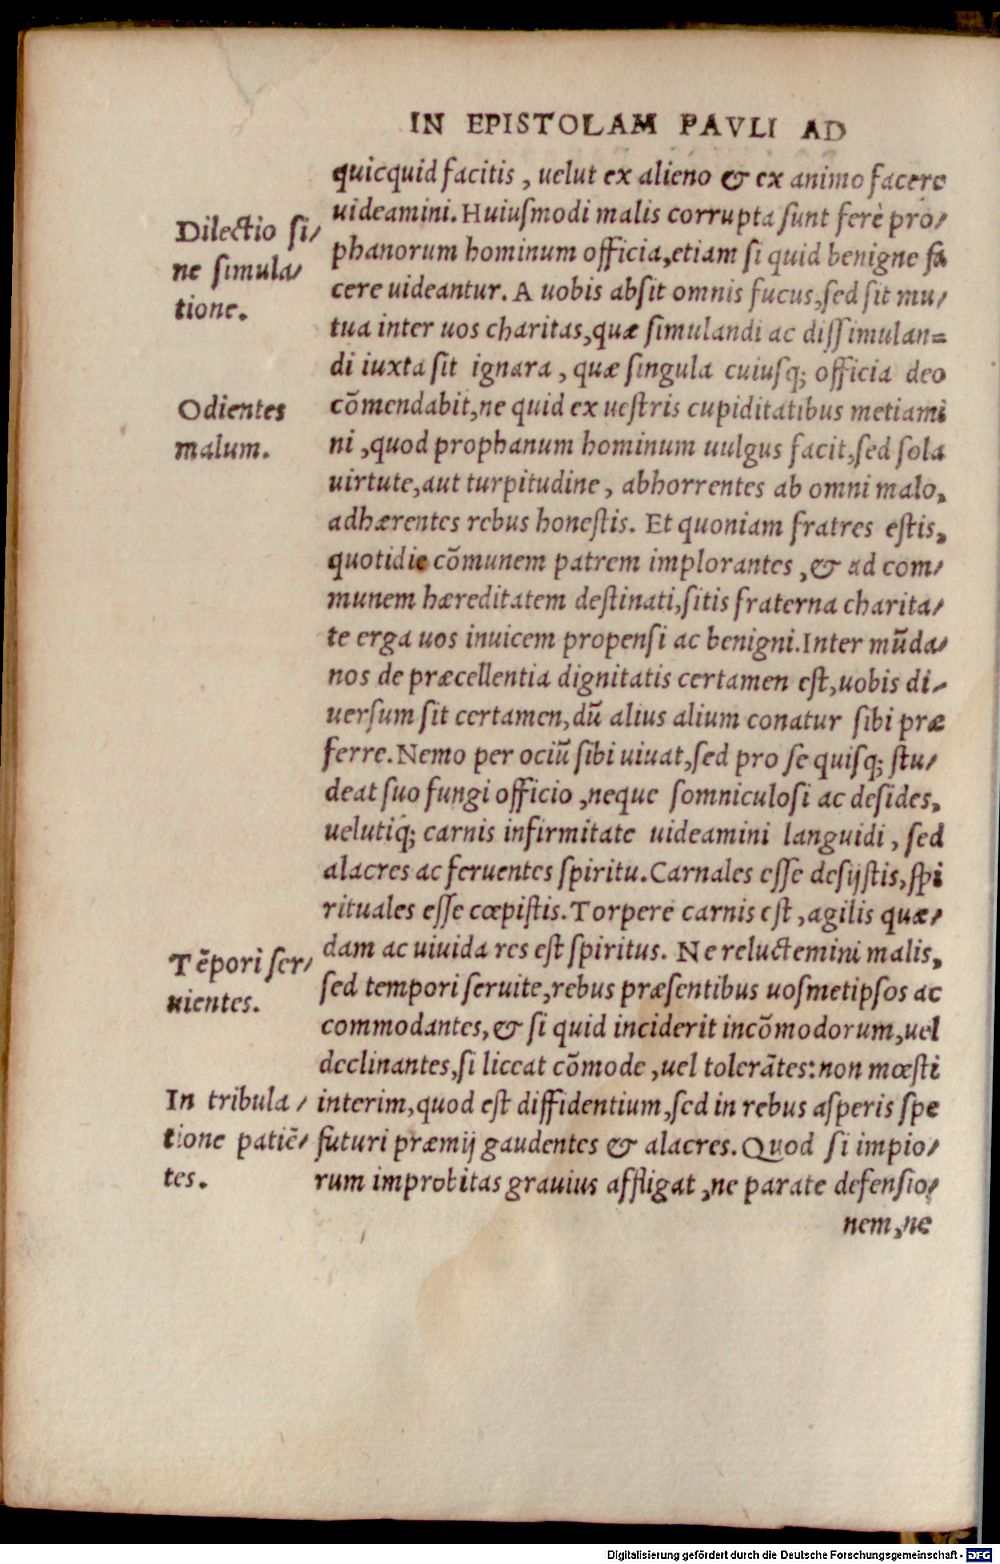 IN EPISTOLAM PAVLI AD
quicquid facitis, uelut ex alieno & ex animo facere
uideamini. Huiusmodi malis corrupta sunt ferè pro/
phanorum hominum officia, etiam si quid benigne fa
cere uideantur. A uobis absit omnis fucus, sed sit mu/
tua inter uos charitas, quæ simulandi ac dissimulan=
di iuxta sit ignara, quæ singula cuiusq; officia deo
cõmendabit, ne quid ex uestris cupiditatibus metiami
ni, quod prophanum hominum uulgus facit, sed sola
uirtute, aut turpitudine, abhorrentes ab omni malo,
adhærentes rebus honestis. Et quoniam fratres estis,
quotidie cõmunem patrem implorantes, & ad com/
munem hæreditatem destinati, sitis fraterna charita/
te erga uos inuicem propensi ac benigni. Inter mũda/
nos de præcellentia dignitatis certamen est, uobis di/
uersum sit certamen, dũ alius alium conatur sibi præ
ferre. Nemo per ociũ sibi uiuat, sed pro se quisq; stu/
deat suo fungi officio, neque somniculosi ac desides,
uelutiq́; carnis infirmitate uideamini languidi, sed
alacres ac feruentes spiritu. Carnales esse desijstis, spi
rituales esse cœpistis. Torpere carnis est, agilis quæ/
dam ac uiuida res est spiritus. Ne reluctemini malis,
sed tempori seruite, rebus præsentibus uosmetipsos ac
commodantes, & si quid inciderit incõmodorum, uel
declinantes, si liceat cõmode, uel tolerãtes: non mœsti
interim, quod est diffidentium, sed in rebus asperis spe
futuri præmij gaudentes & alacres. Quod si impio/
rum improbitas grauius affligat, ne parate defensio/
nem, ne
Dilectio si/
ne simula/
tione.
Odientes
malum.
Tẽpori ser/
uientes.
In tribula/
tione patiẽ/
tes.
Digitalisierung gefördert durch die Deutsche Forschungsgemeinschaft - DFG